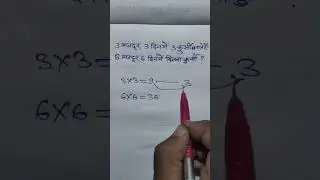 3 मजदूर, 3 दिन में 3 कुर्सी बनाते हैं
6 मजदूर, 6 दिन में कितना कुर्सी ?
3×3 = 9 — 3
6×6 = 36